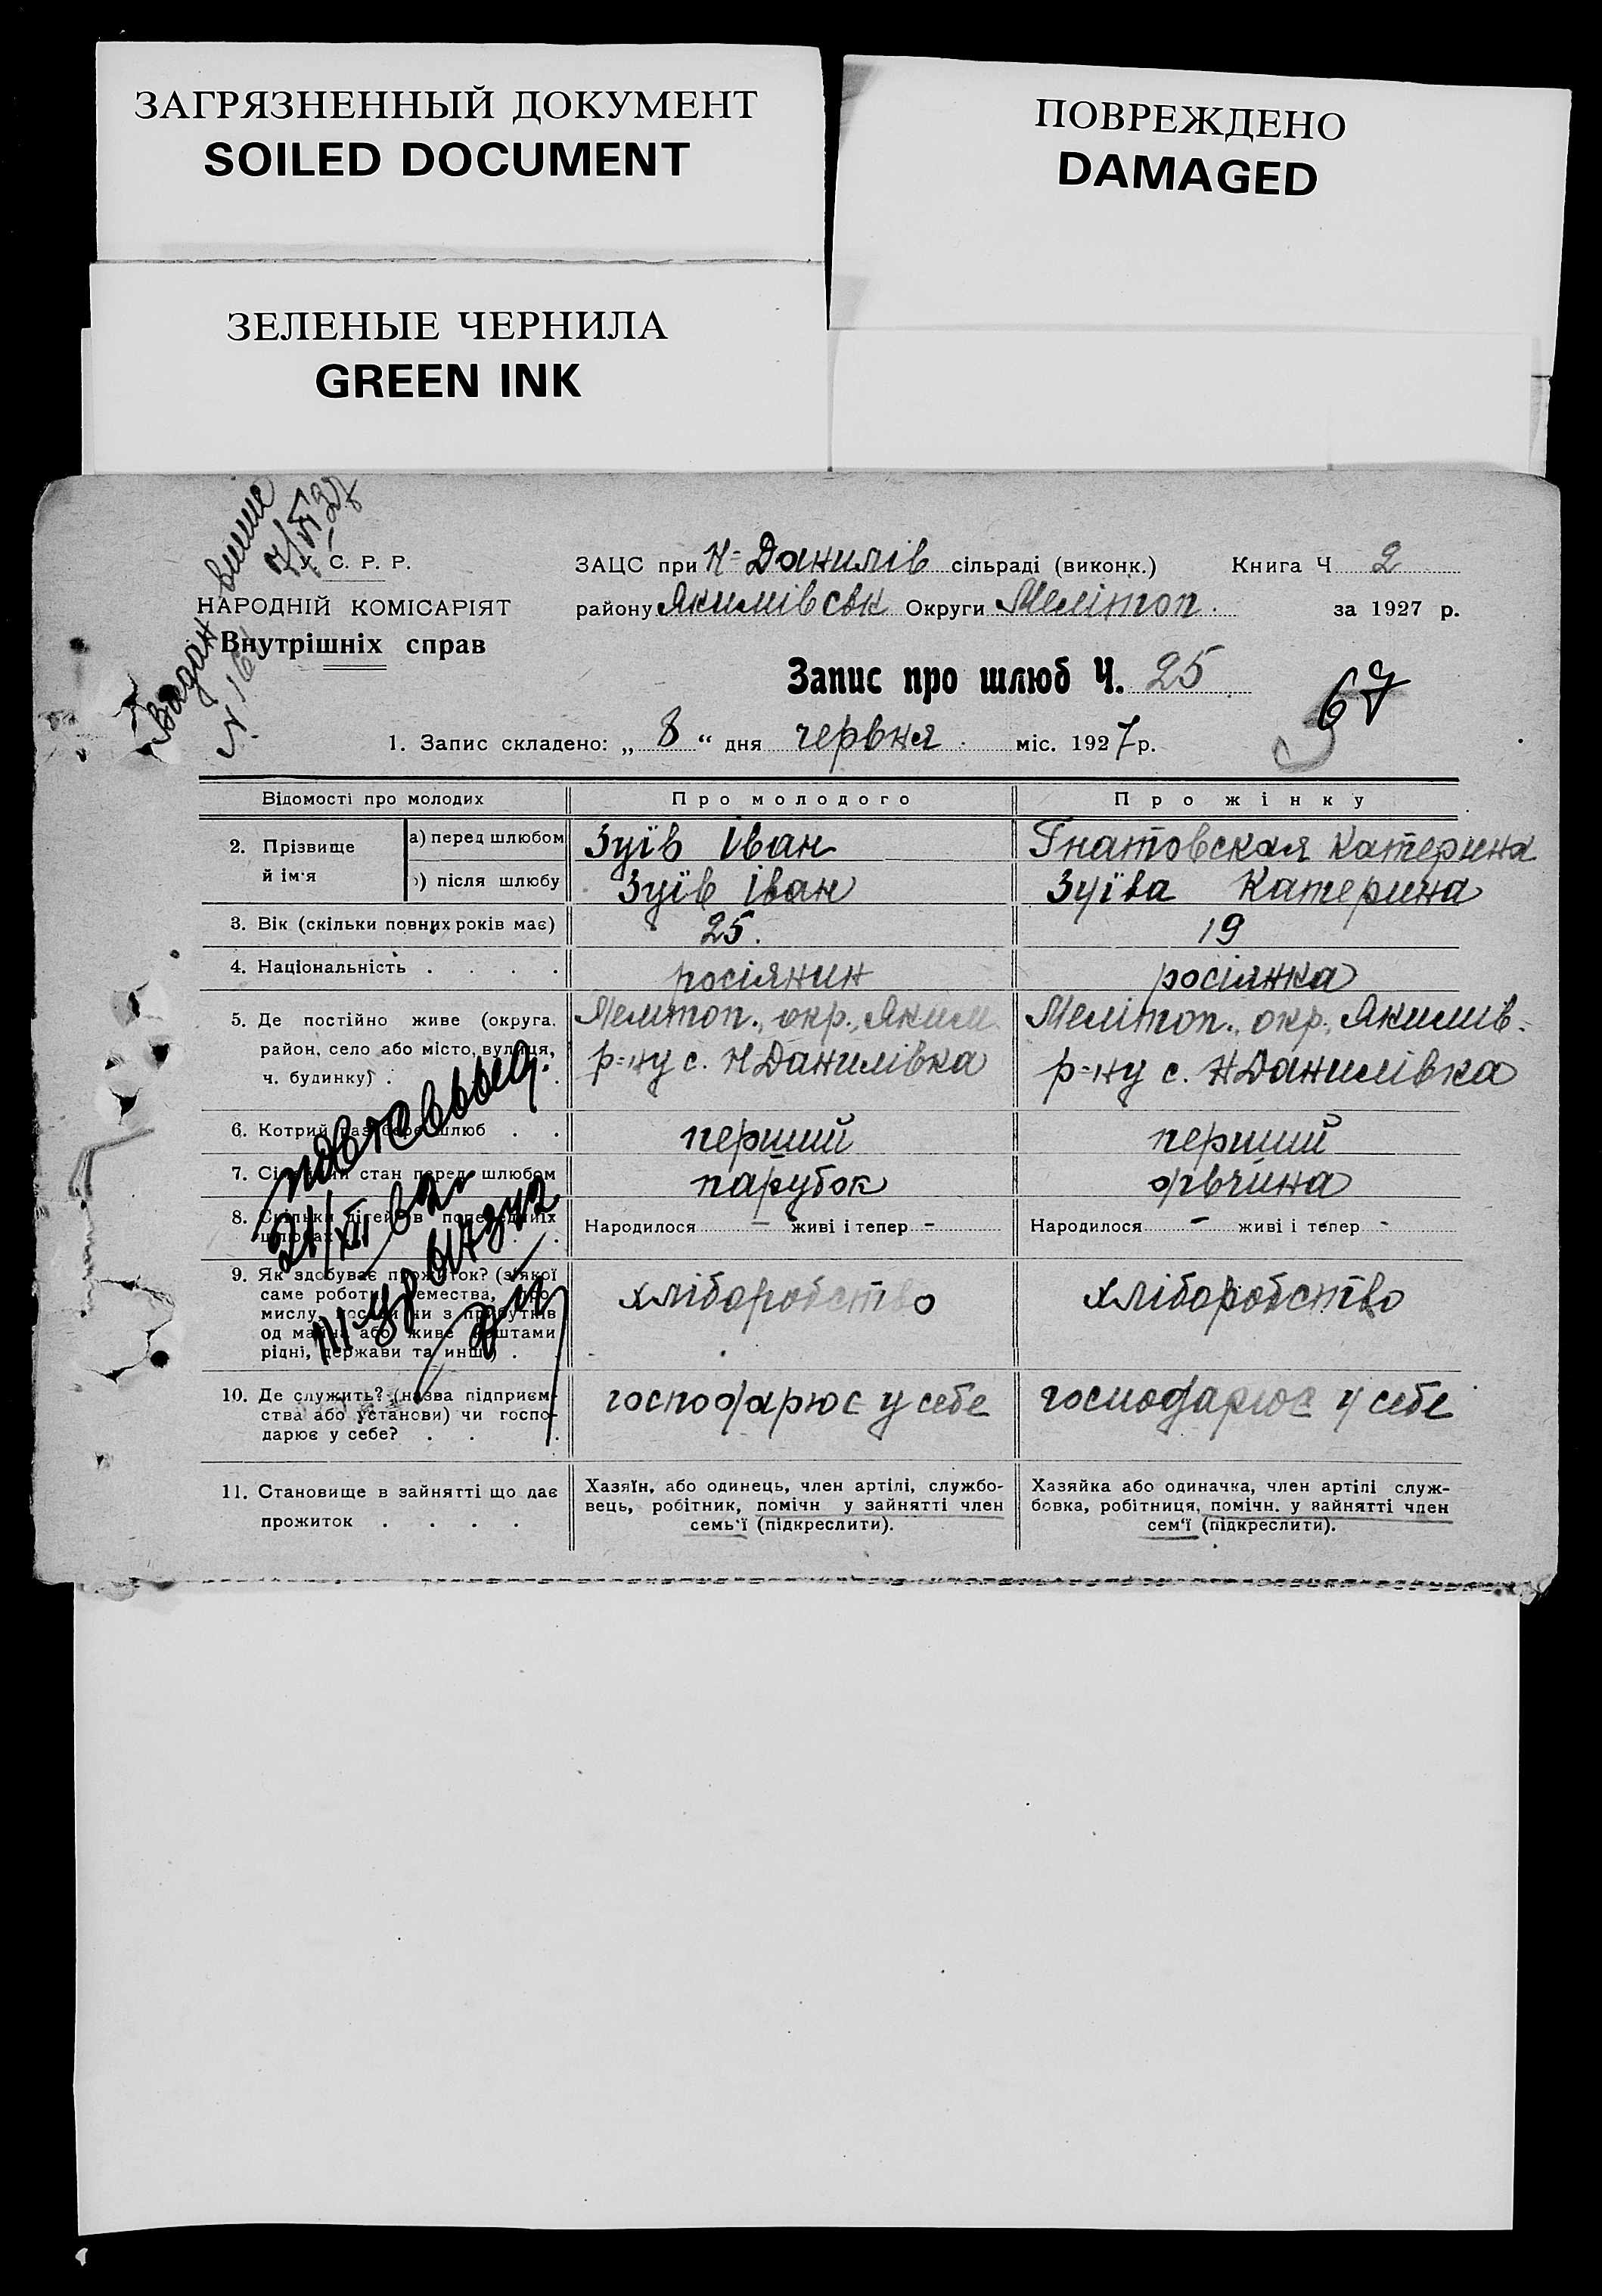 ЗАГРЯЗНЕННЫЙ ДОКУМЕНТ
SOILED DOCUMENT
ПОВРЕЖДЕНО
DAMAGED
ЗЕЛЕНЫЕ ЧЕРНИЛА
GREEN INK
У. С. Р. Р.
НАРОДНІЙ КОМІСАРІЯТ
Внутрішніх справ
ЗАЦС при Н-Данилів сільраді (виконк.) Книга Ч 2
району Якимівськ Округи Мелітоп. за 1927 р.
Запис про шлюб Ч. 25
67
1. Запис складено: „ 8 “ дня червня міс. 1927 р.
Відомості про молодих Про молодого Про жінку
2. Прізвище й ім'я
а) перед шлюбом Зуїв Іван Гнатовская Катерина
) після шлюбу Зуїв Іван Зуїва Катерина
3. Вік (скільки повних років має) 25. 19
4. Національність . . . . росіянин росіянка
5. Де постійно живе (округа, Мелітоп., окр., Яким. Мелітоп., окр., Якимів.
район, село або місто, вулиця, р-ну с. Н Данилівка р-ну с. Н Данилівка
ч. будинку) .
6. Котрий раз бере шлюб . . перший перший
7. Сімейний стан перед шлюбом парубок дівчина
8. Скільки дітей в попередніх Народилося – живі і тепер – Народилося – живі і тепер -
шлюбах
9. Як здобуває прожиток? (з якої хліборобство хліборобство
саме роботи, ремества, про-
мислу, посади чи з прибутків
од майна або живе коштами
рідні, держави та инш.) .
10. Де служить? (назва підприєм- господарює у себе господарює у себе
ства або установи) чи госпо-
дарює у себе? . . .
11. Становище в зайнятті що дає
прожиток . . . .
Хазяїн, або одинець, член артілі, службо-
вець, робітник, помічн у зайнятті член
семь'ї (підкреслити).
Хазяйка або одиначка, член артілі служ-
бовка, робітниця, помічн. у зайнятті член
сем'ї (підкреслити).